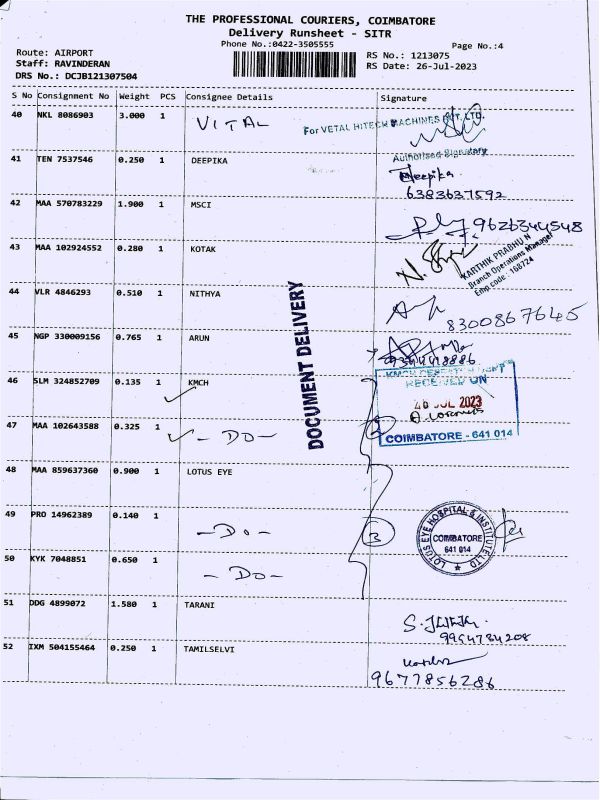 THE PROFESSIONAL COURIERS, COIMBATORE
Delivery Runsheet - SITR
Phone No.:0422-3505555
Page No.:4
Route: AIRPORT
Staff: RAVINDERAN
DRS No.: DCJB121307504
RS No.: 1213075
RS Date: 26-Jul-2023
S No Consignment No Weight PCS Consignee Details Signature
40 NKL 8086903 3.000 1 VITAL
For VETAL HITECH MACHINES PVT. LTD.
Authorised Signatory
41 TEN 7537546 0.250 1 DEEPIKA
Deepika
6383637592
42 MAA 570783229 1.900 1 MSCI
9626344548
43 MAA 102924552 0.280 1 KOTAK
KARTHIK PRABHU N
Branch Operations Manager
Emp code : 168724
44 VLR 4846293 0.510 1 NITHYA
8300867645
45 NGP 330009156 0.765 1 ARUN
DOCUMENT DELIVERY
46 SLM 324852709 0.135 1 KMCH
RECEIVED ON
26 JUL 2023
COIMBATORE - 641 014
47 MAA 102643588 0.325 1 - DO -
48 MAA 859637360 0.900 1 LOTUS EYE
49 PRO 14962389 0.140 1 - DO -
LOTUS EYE HOSPITAL & INSTITUTE LTD
COIMBATORE
641 014
50 KYK 7048851 0.650 1 - DO -
51 DDG 4899072 1.580 1 TARANI
9954734208
52 IXM 504155464 0.250 1 TAMILSELVI
9677856286